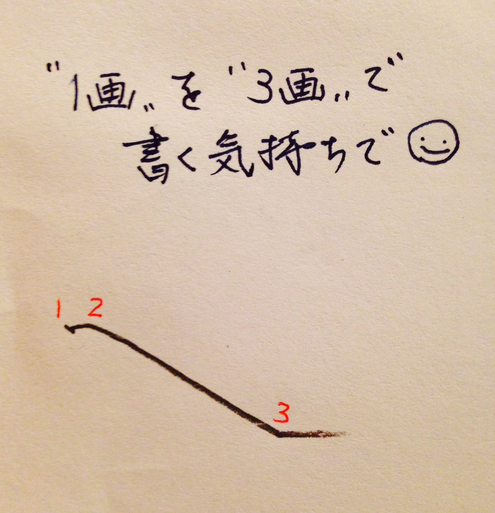 "1画"を"3画"で
書く気持ちで
1 2
3